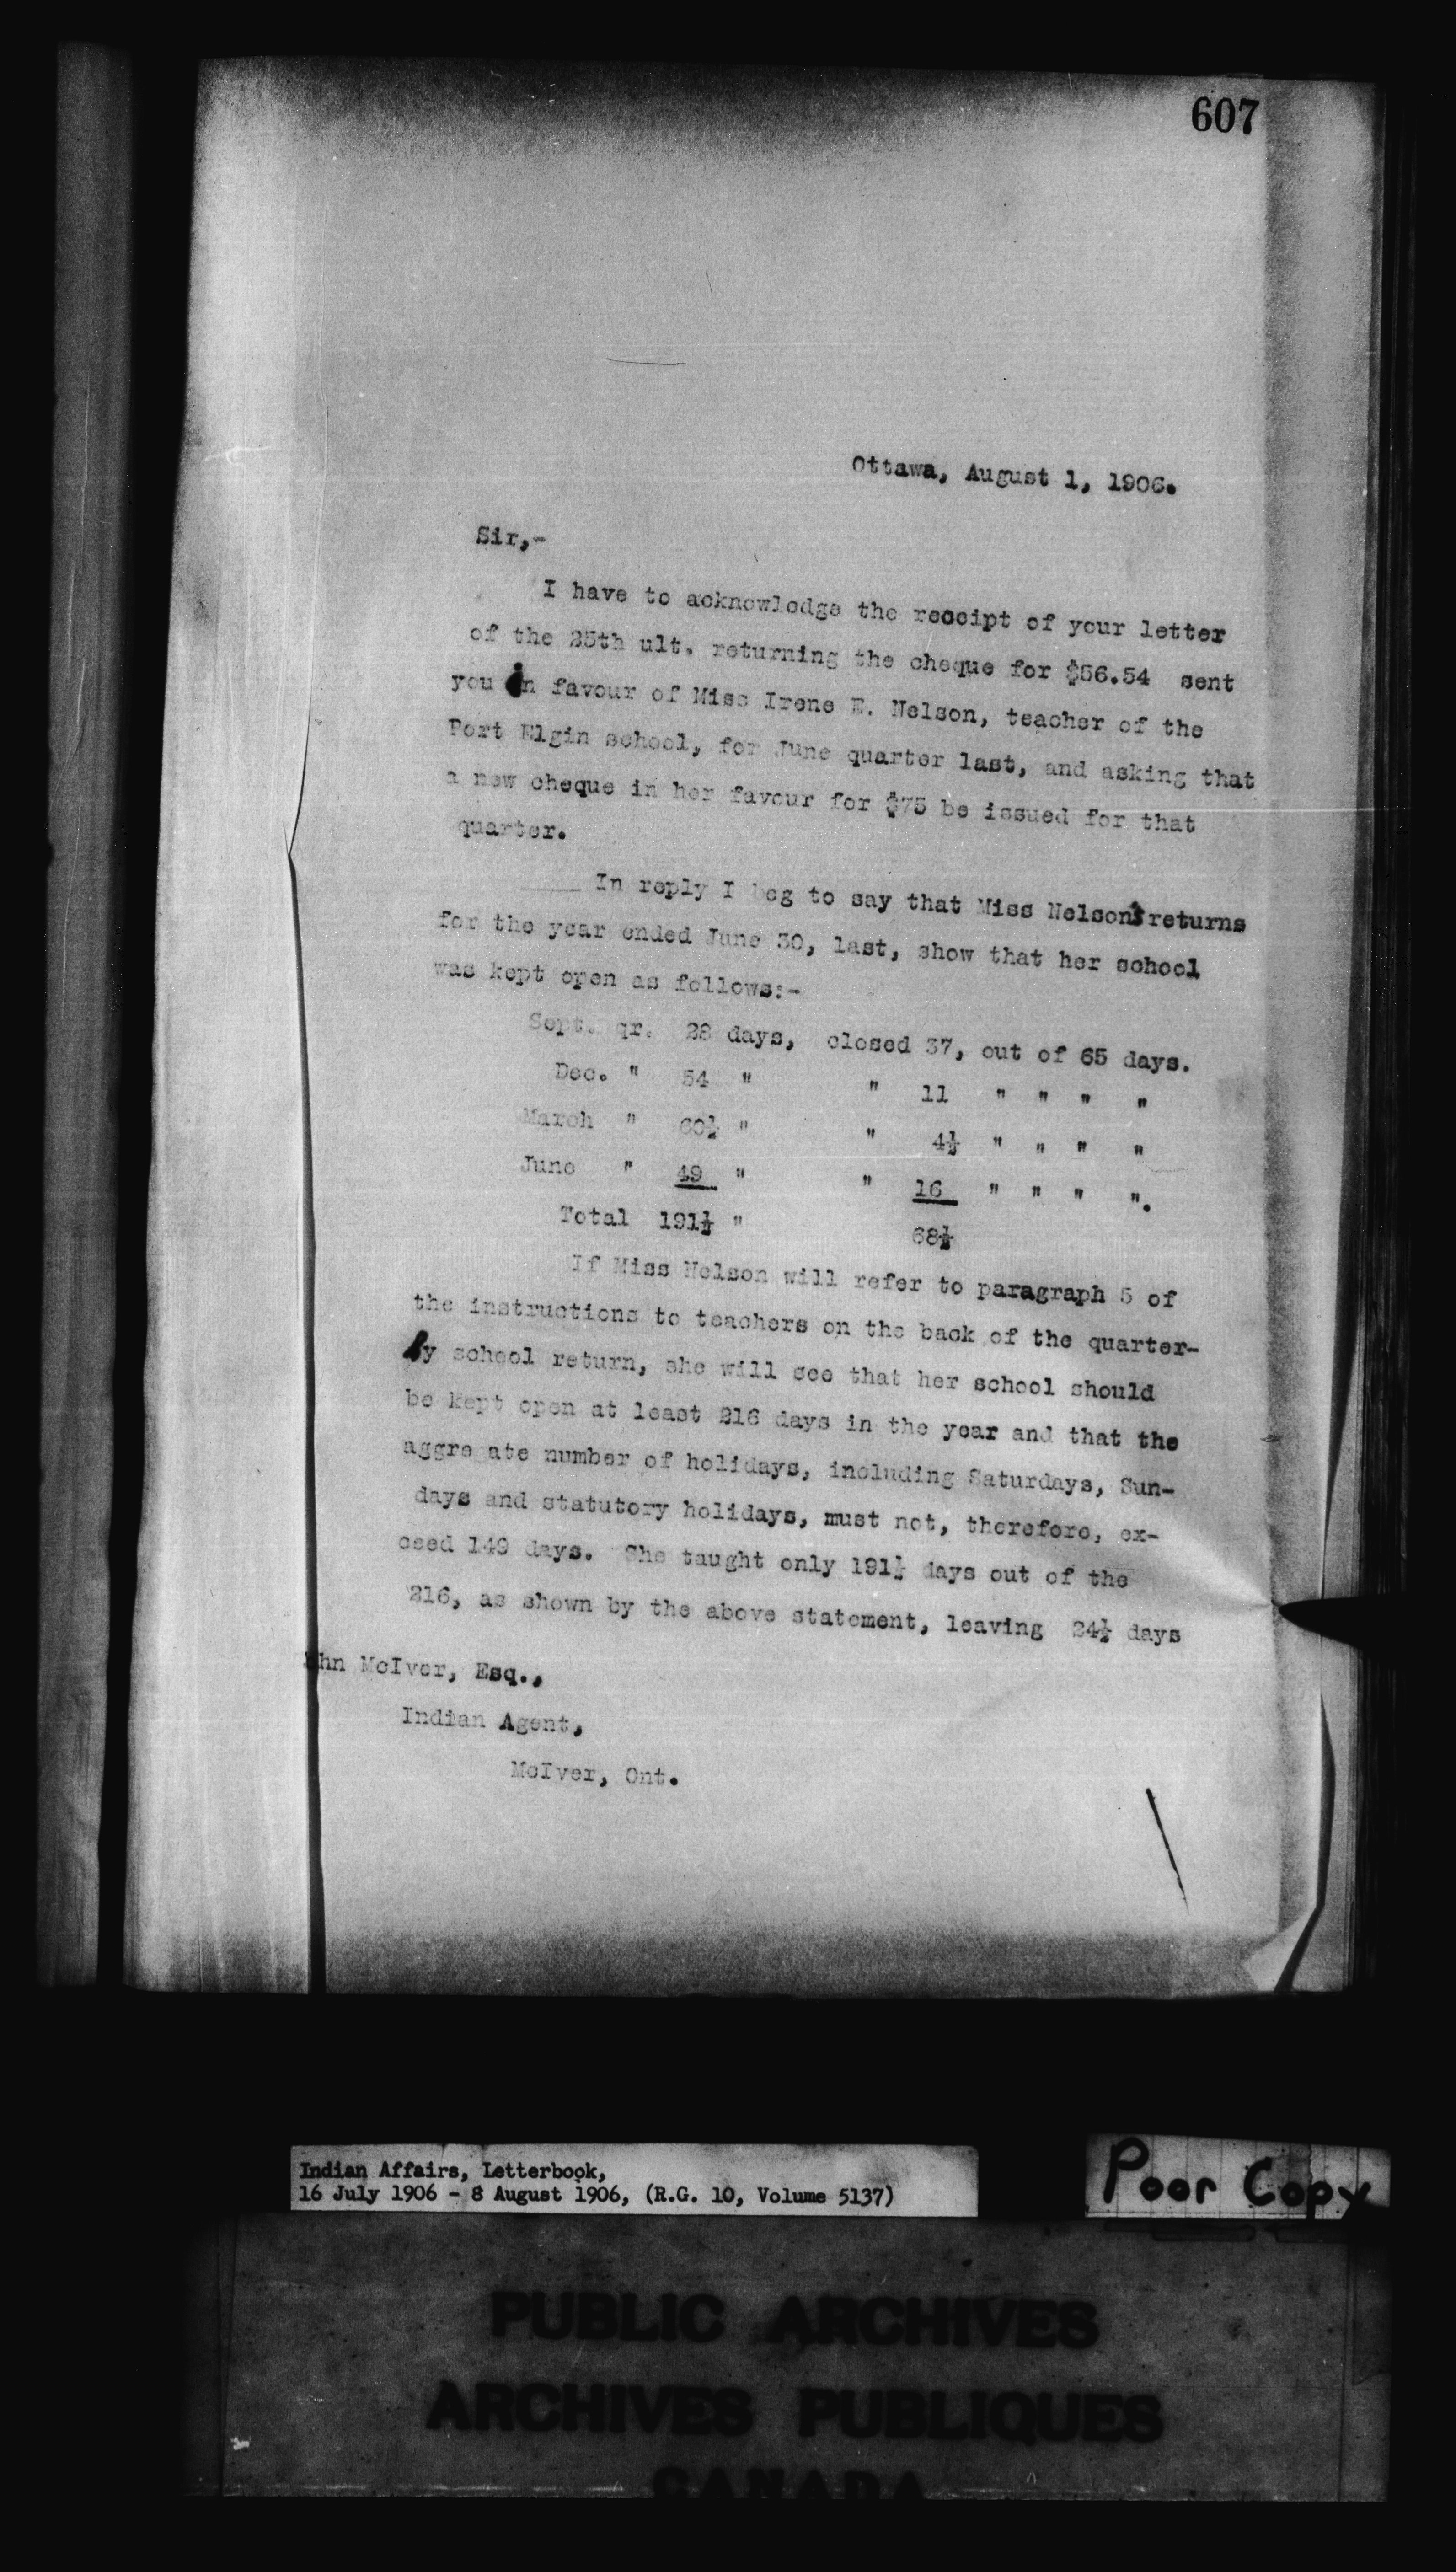 607
Ottawa, August 1, 1906.
Sir,-
I have to acknowledge the receipt of your letter
of the 25th ult. returning the cheque for $56.54 sent
you in favour of Miss Irene E. Nelson, teacher of the
Port Elgin school, for June quarter last, and asking that
a new cheque in her favour for $75 be issued for that
quarter.
In reply I beg to say that Miss Nelson's returns
for the year ended June 30, last, show that her school
was kept open as follows:-
Sept. qr. 28 days, closed 37, out of 65 days.
Dec. " 54 " " 11 " " " "
March " 60½ " " 4½ " " " "
June " 49 " " 16 " " " ".
Total 191½ " 68½
If Miss Nelson will refer to paragraph 5 of
the instructions to teachers on the back of the quarter-
ly school return, she will see that her school should
be kept open at least 216 days in the year and that the
aggre ate number of holidays, including Saturdays, Sun-
days and statutory holidays, must not, therefore, ex-
ceed 149 days. She taught only 191½ days out of the
216, as shown by the above statement, leaving 24½ days
hn McIver, Esq.,
Indian Agent,
McIver, Ont.
Indian Affairs, Letterbook,
16 July 1906 - 8 August 1906, (R.G. 10, Volume 5137)
Poor Copy
PUBLIC ARCHIVES
ARCHIVES PUBLIQUES
CANADA